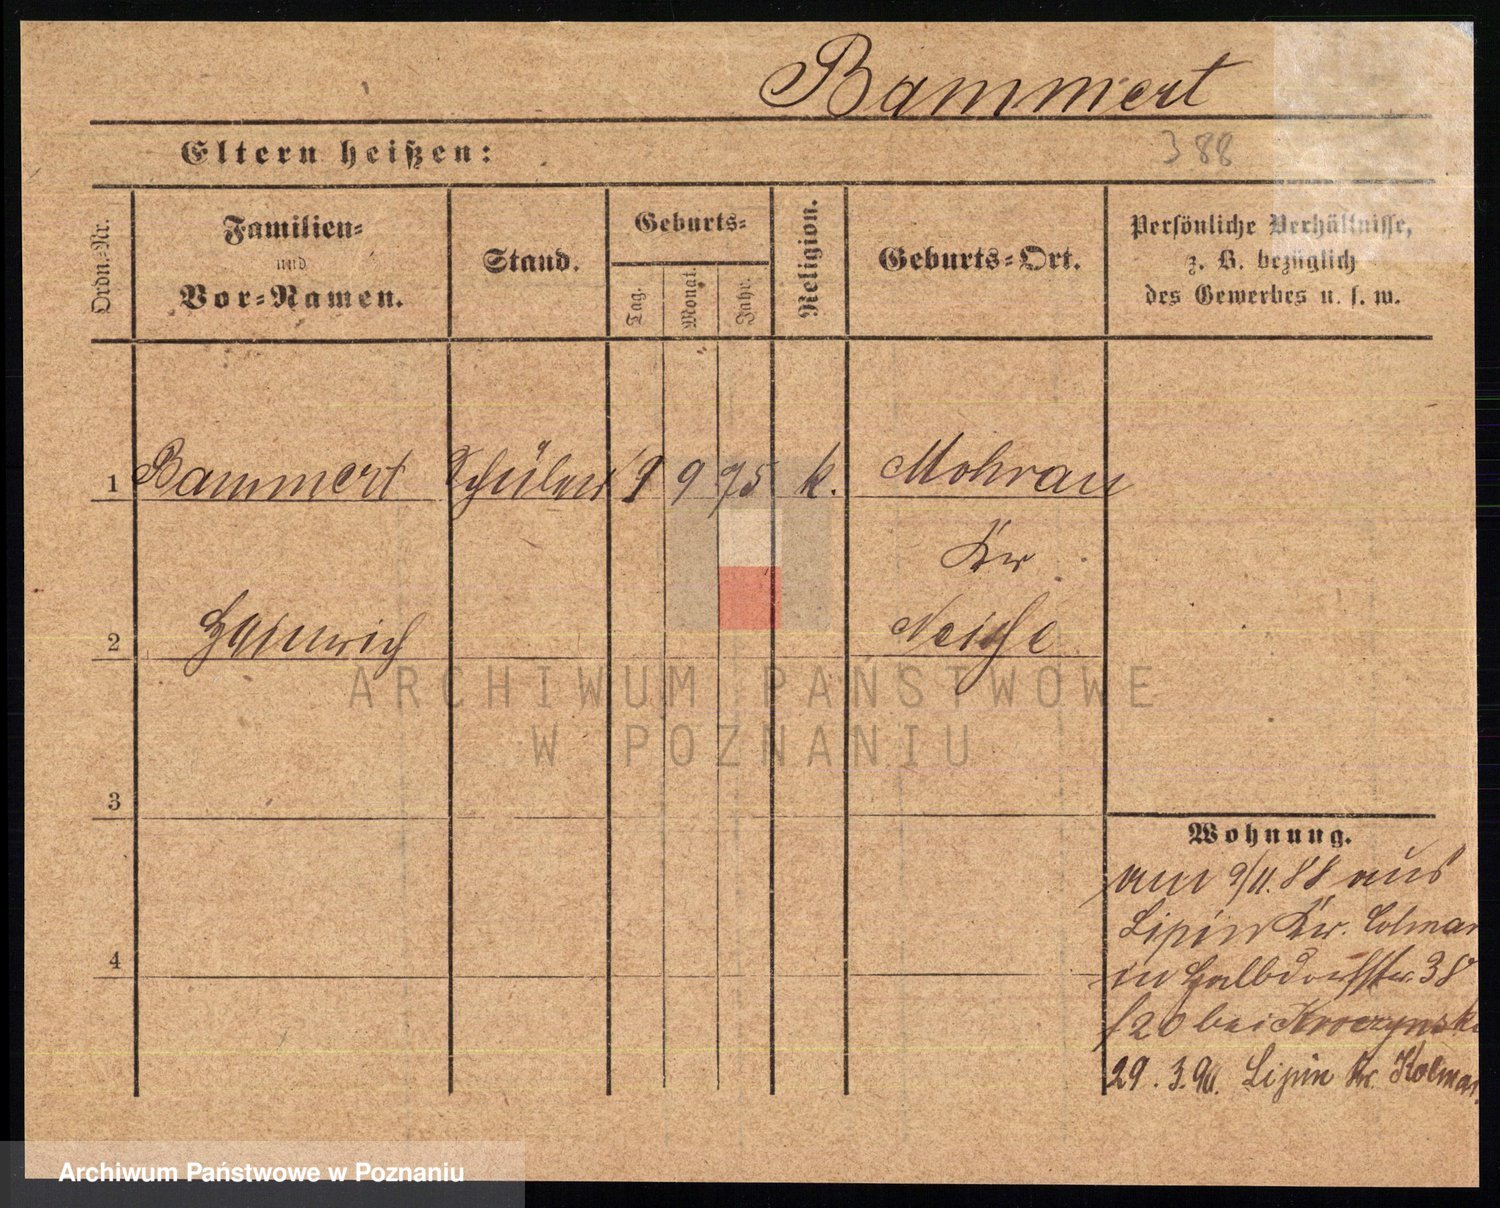 Bammert
388
Eltern heißen:
Ordn.-Nr.
Familien-
und
Vor-Namen.
Stand.
Geburts-
Tag.
Monat.
Jahr.
Religion.
Geburts-Ort.
Persönliche Verhältnisse,
z. B. bezüglich
des Gewerbes u. s. w.
1 Bammert Schüler 9 9 75 k. Mohrau
Kr
2 Heinrich Neisse
ARCHIWUM PAŃSTWOWE
W POZNANIU
3
Wohnung.
am 9/11.88 aus
Lipin Kr. Colmar
4
in Halbdorfstr. 38
bei Kroczynski
29.3.90. Lipin Kr. Kolmar
Archiwum Państwowe w Poznaniu